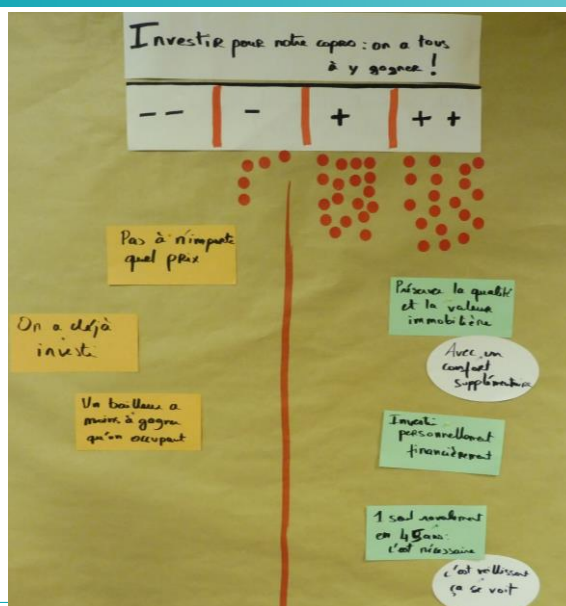 Investir pour notre copro : on a tous
à y gagner !
-- - + ++
Pas à n'importe
quel prix
On a déjà
investi
Un bailleur a
moins à gagner
qu'un occupant
Préserver la qualité
et la valeur
immobilière
Avec un
confort
supplémentaire
Investi
personnellement
financièrement
1 seul ravalement
en 45 ans :
c'est nécessaire
c'est vieillissant
ça se voit